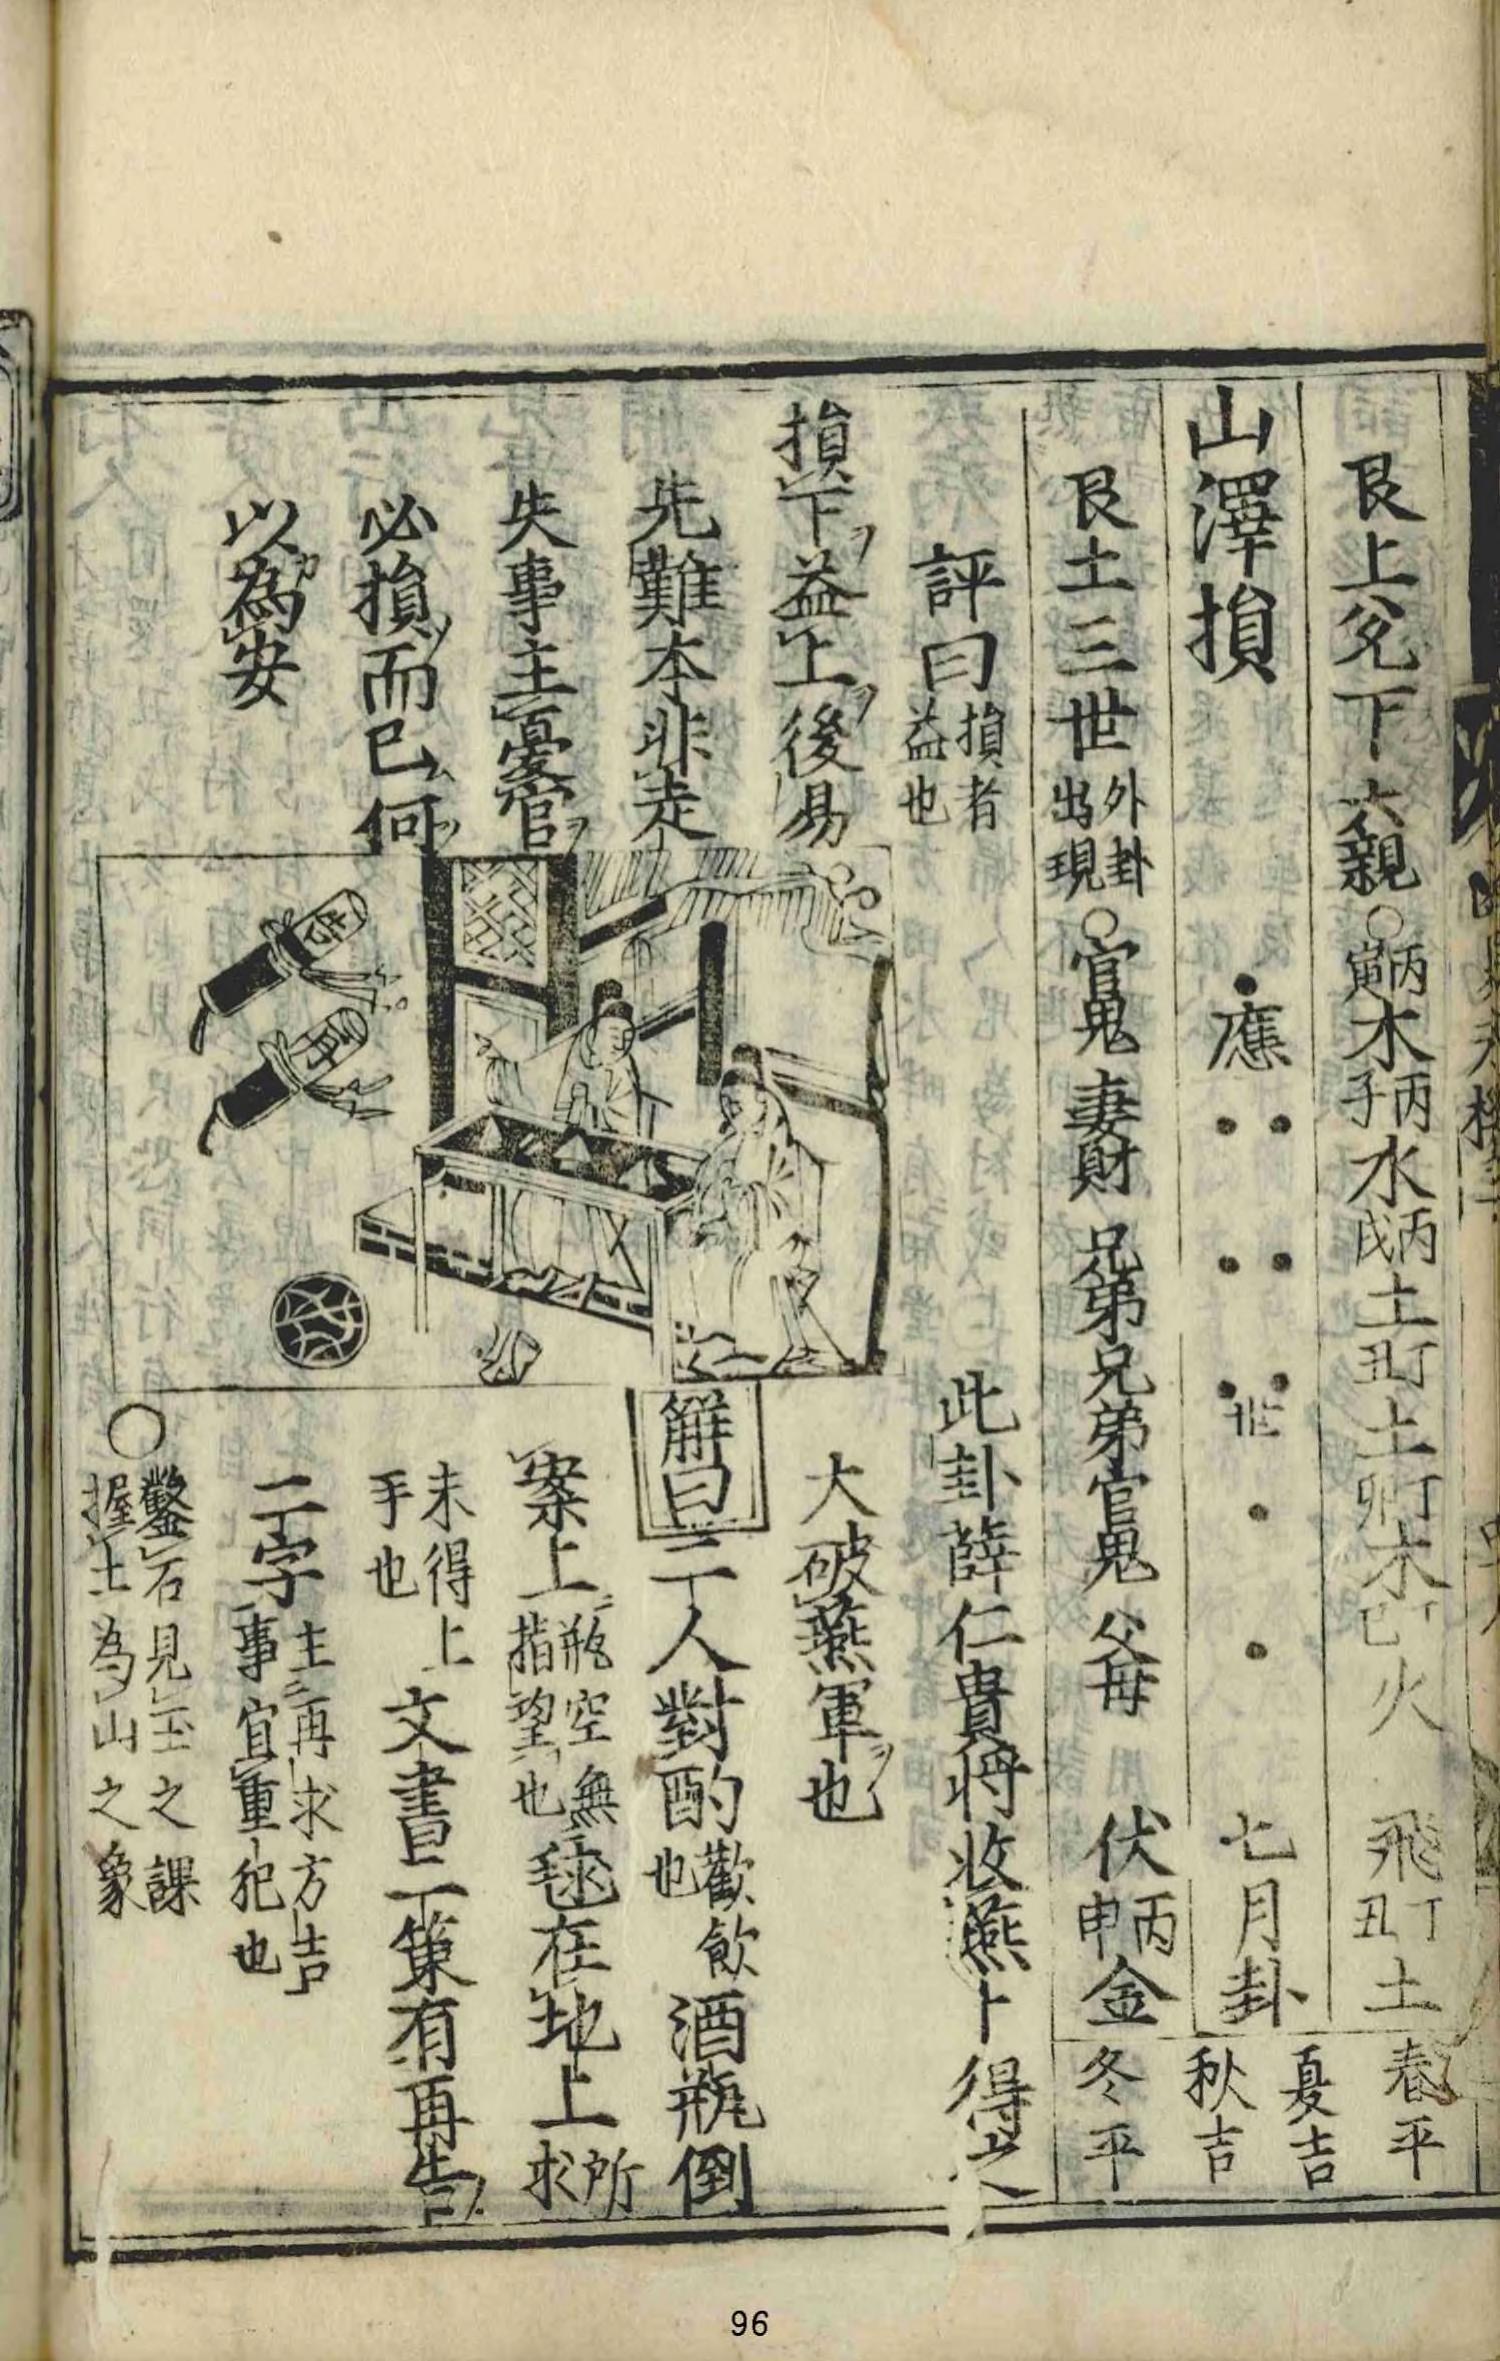 艮上兌下六親○丙寅木丙子水丙戌土丁丑土丁卯木丁巳火 飛丁丑土
春平
山澤損 應 世 七月卦
夏吉
秋吉
艮土三世外卦出現○官鬼 妻財 兄弟 兄弟 官鬼 父母 伏丙申金
冬平
評曰損者益也
損下益上後易
先難本非走
失事主憂官
必損而已何
以為安
此卦薛仁貴將收燕卜得之
大破燕軍也
解曰二人對酌歡飲也酒瓶倒
案上瓶空無指望也毬在地上所求
未得上手也文書二策有再告
二字主再求方吉事宜重犯也
○鑿石見玉之課
握土為山之象
再
告
96